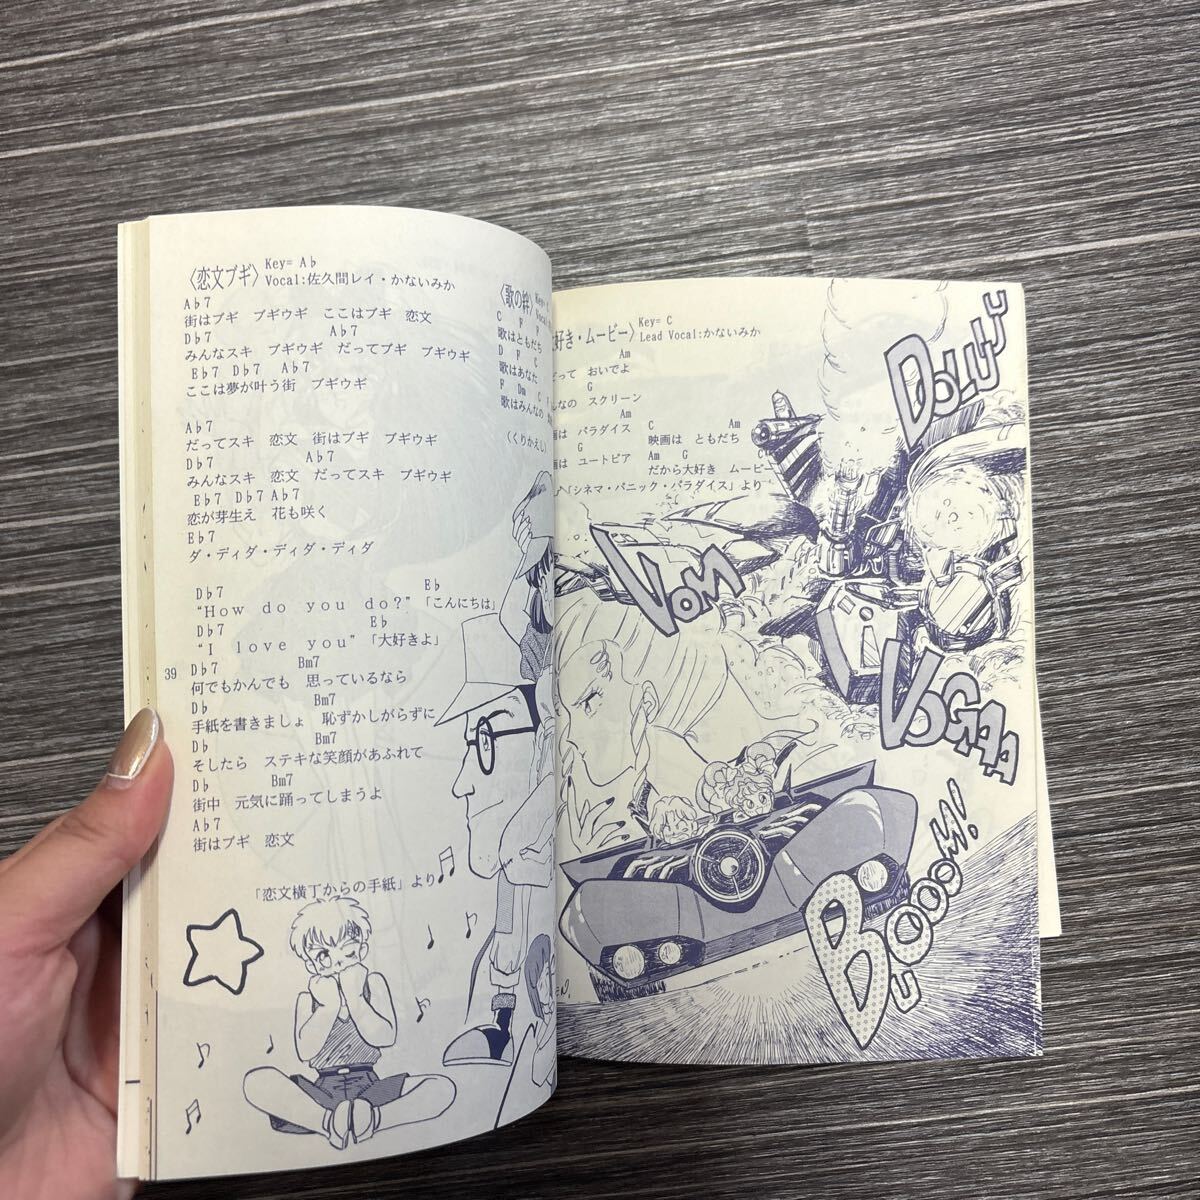 〈恋文ブギ〉 Key= A♭
Vocal:佐久間レイ・かないみか
A♭7
街はブギ ブギウギ ここはブギ 恋文
D♭7 A♭7
みんなスキ ブギウギ だってブギ ブギウギ
E♭7 D♭7 A♭7
ここは夢が叶う街 ブギウギ
A♭7
だってスキ 恋文 街はブギ ブギウギ
D♭7 A♭7
みんなスキ 恋文 だってスキ ブギウギ
E♭7 D♭7 A♭7
恋が芽生え 花も咲く
E♭7
ダ・ディダ・ディダ・ディダ
D♭7 E♭
“How do you do?”「こんにちは」
D♭7 E♭
“I love you”「大好きよ」
D♭7 Bm7
何でもかんでも 思っているなら
D♭ Bm7
手紙を書きましょ 恥ずかしがらずに
D♭ Bm7
そしたら ステキな笑顔があふれて
D♭ Bm7
街中 元気に踊ってしまうよ
A♭7
街はブギ 恋文
「恋文横丁からの手紙」より
39
〈歌の絆〉 Key=
Vocal:
C F F
歌はともだち
D F C
歌はあなた
F Dm C
歌はみんなの
(くりかえし)
好き・ムービー〉 Key= C
Lead Vocal:かないみか
Am
だって おいでよ
G
んなの スクリーン
Am
画は パラダイス
G
画は ユートピア
C Am
映画は ともだち
Am G C
だから大好き ムービー
「シネマ・パニック・パラダイス」より
DOLUUU
VOM
VOGAA
BLOOOM!